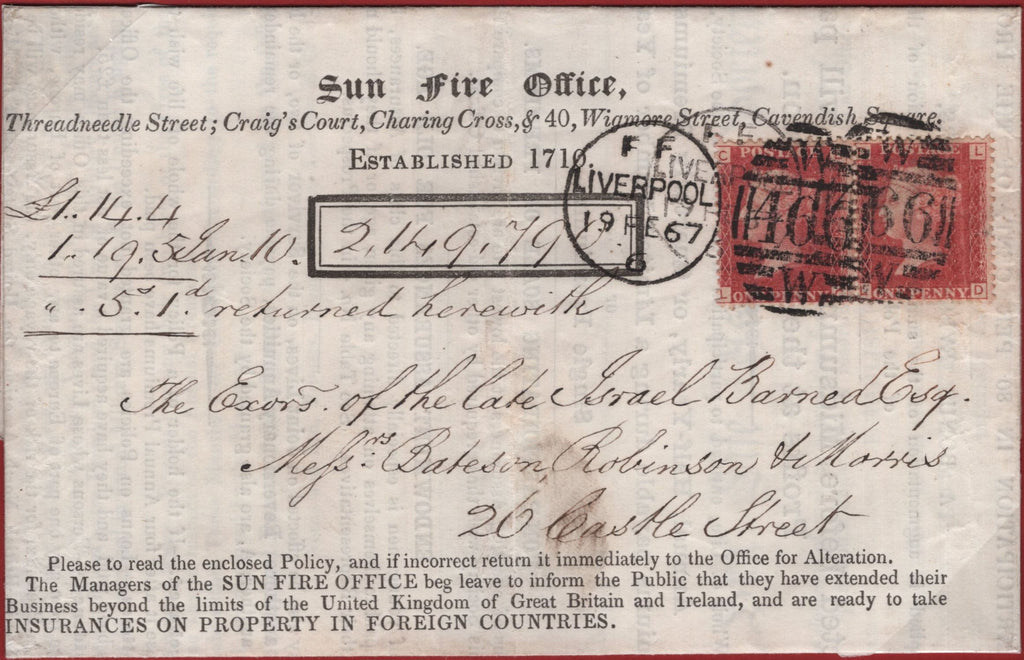 Sun Fire Office,
Threadneedle Street; Craig's Court, Charing Cross, & 40, Wigmore Street, Cavendish Square.
ESTABLISHED 1710.
£1.14.4
1.19.5 Jan. 10. 2,149,790
" . 5s. 1d. returned herewith
F F
LIVERPOOL
19 FE 67
6
C L
W W
466 66
W W
ONE PENNY ONE PENNY D
The Exors. of the late Israel Barned Esq.
Messrs. Bateson, Robinson & Morris
26 Castle Street
Please to read the enclosed Policy, and if incorrect return it immediately to the Office for Alteration.
The Managers of the SUN FIRE OFFICE beg leave to inform the Public that they have extended their
Business beyond the limits of the United Kingdom of Great Britain and Ireland, and are ready to take
INSURANCES ON PROPERTY IN FOREIGN COUNTRIES.